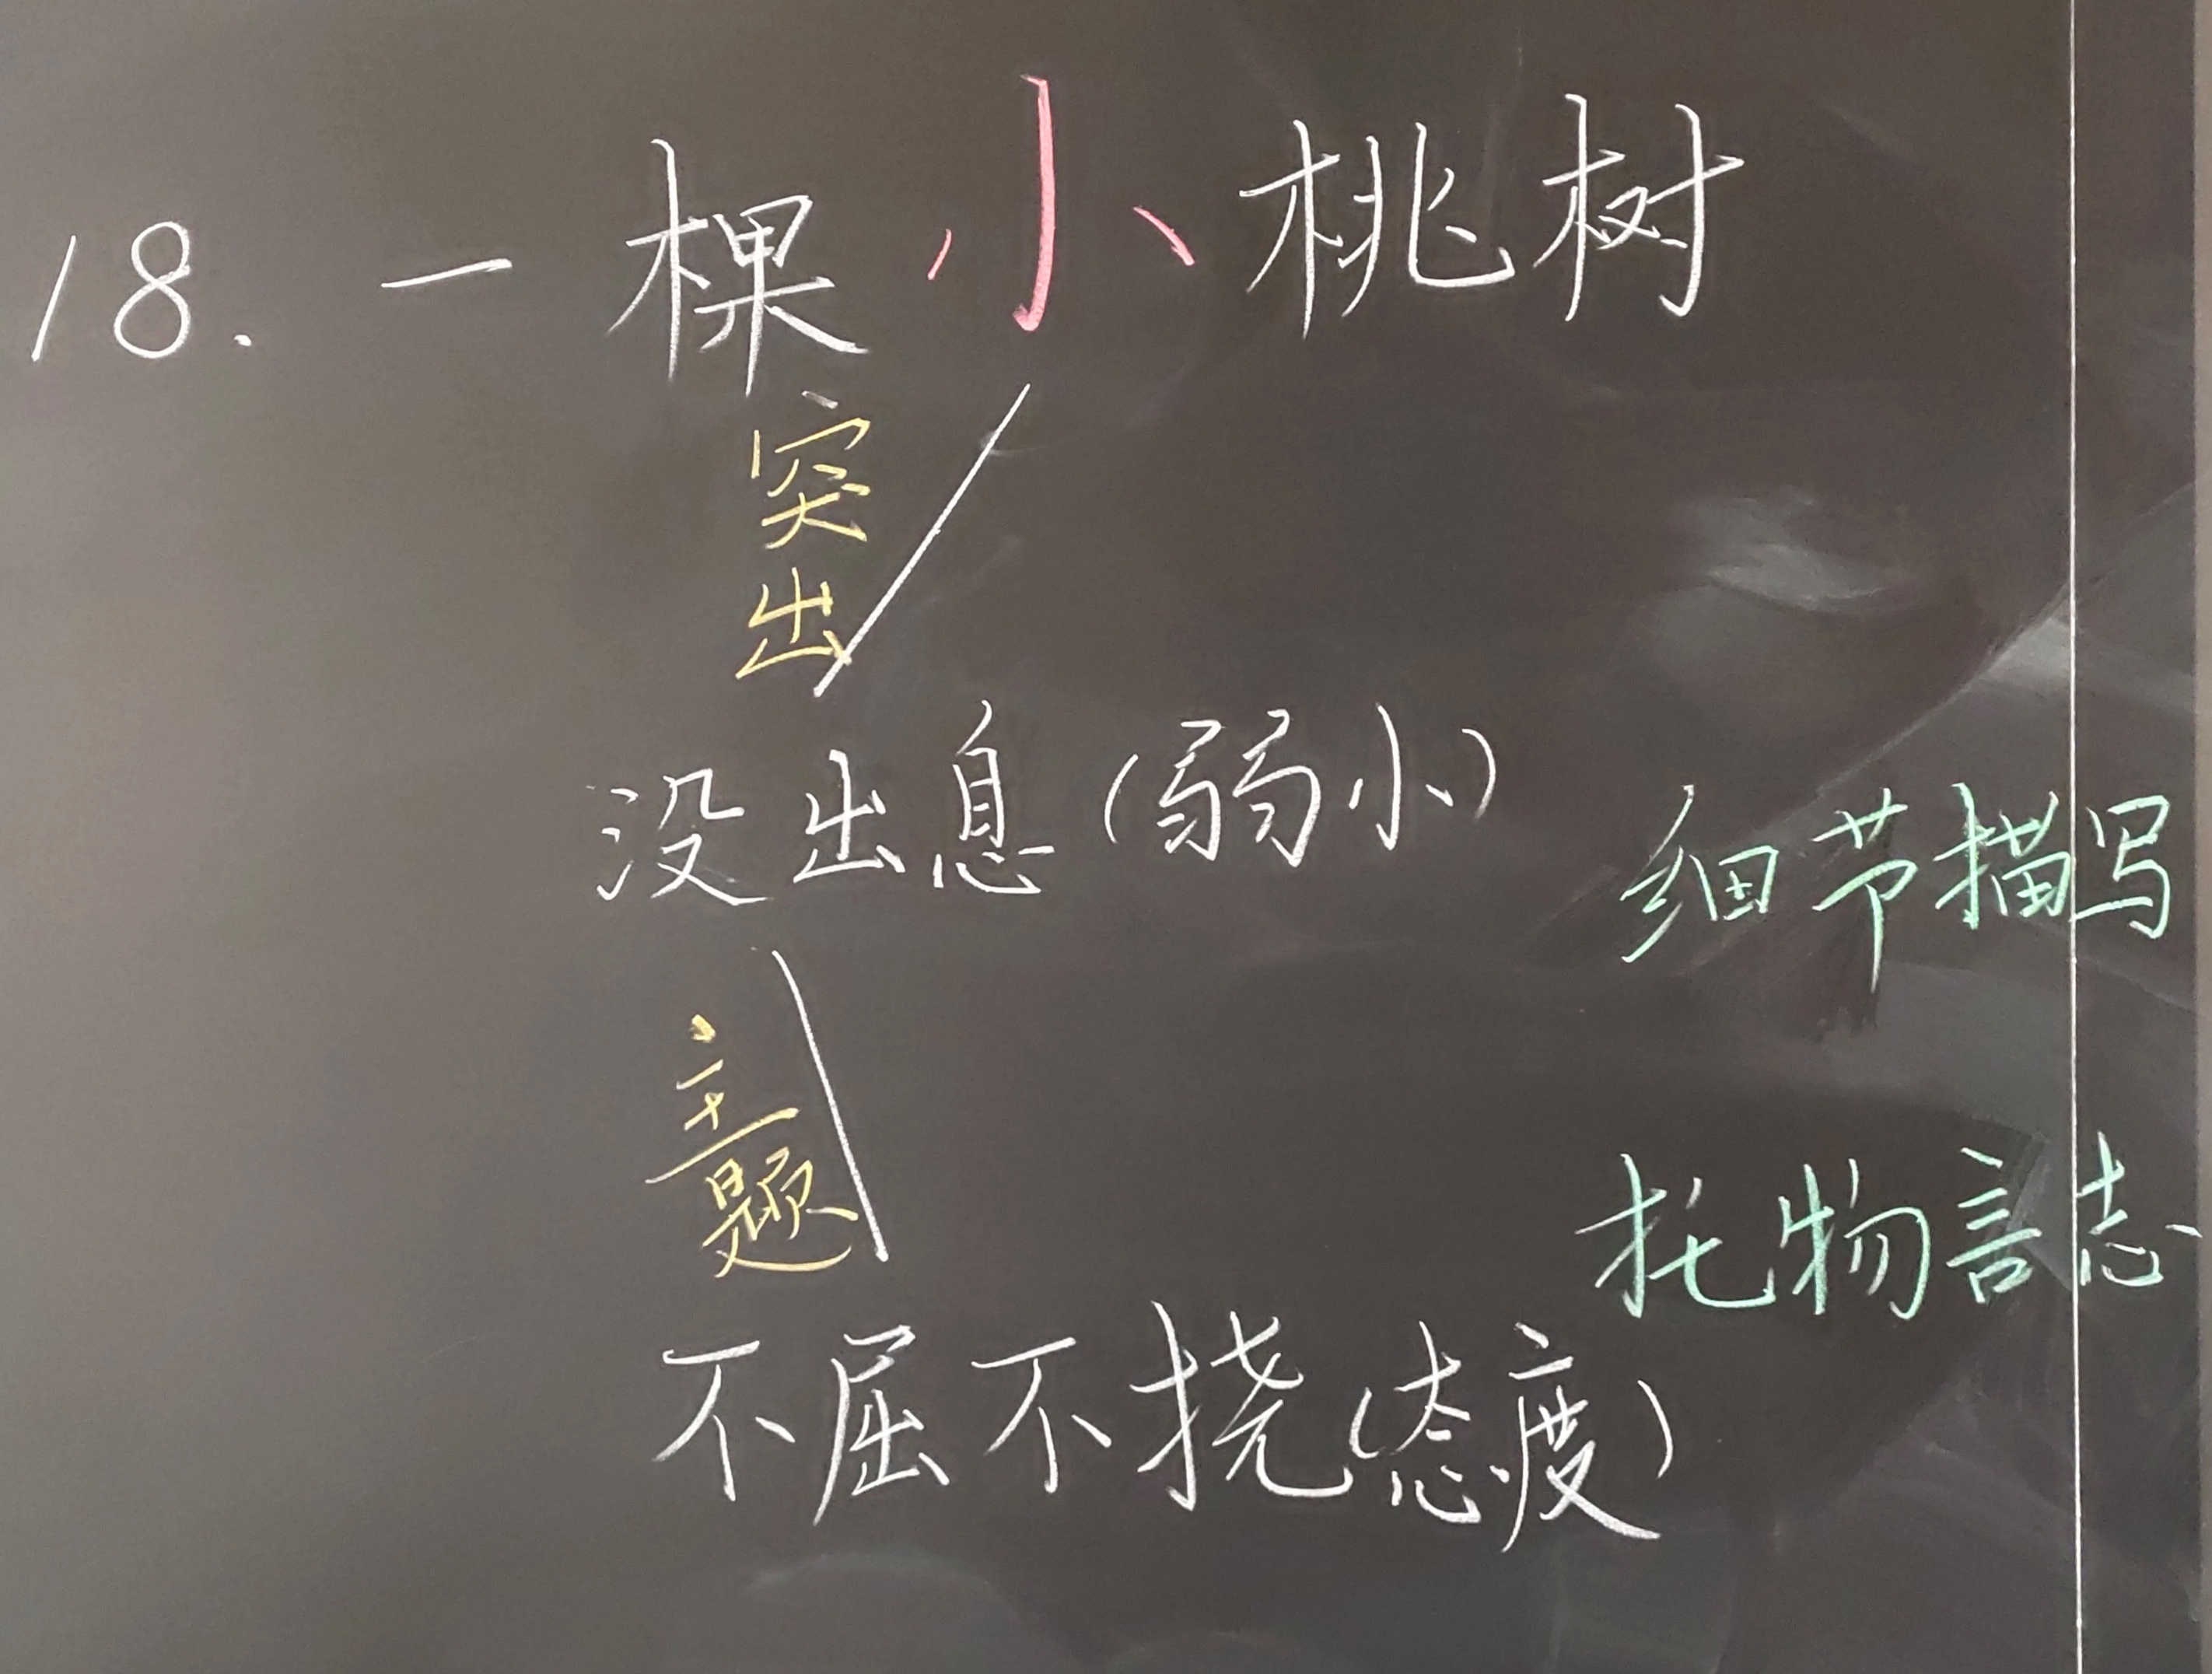 18. 一棵小桃树
突出
没出息(弱小)
细节描写
主题
托物言志
不屈不挠(态度)